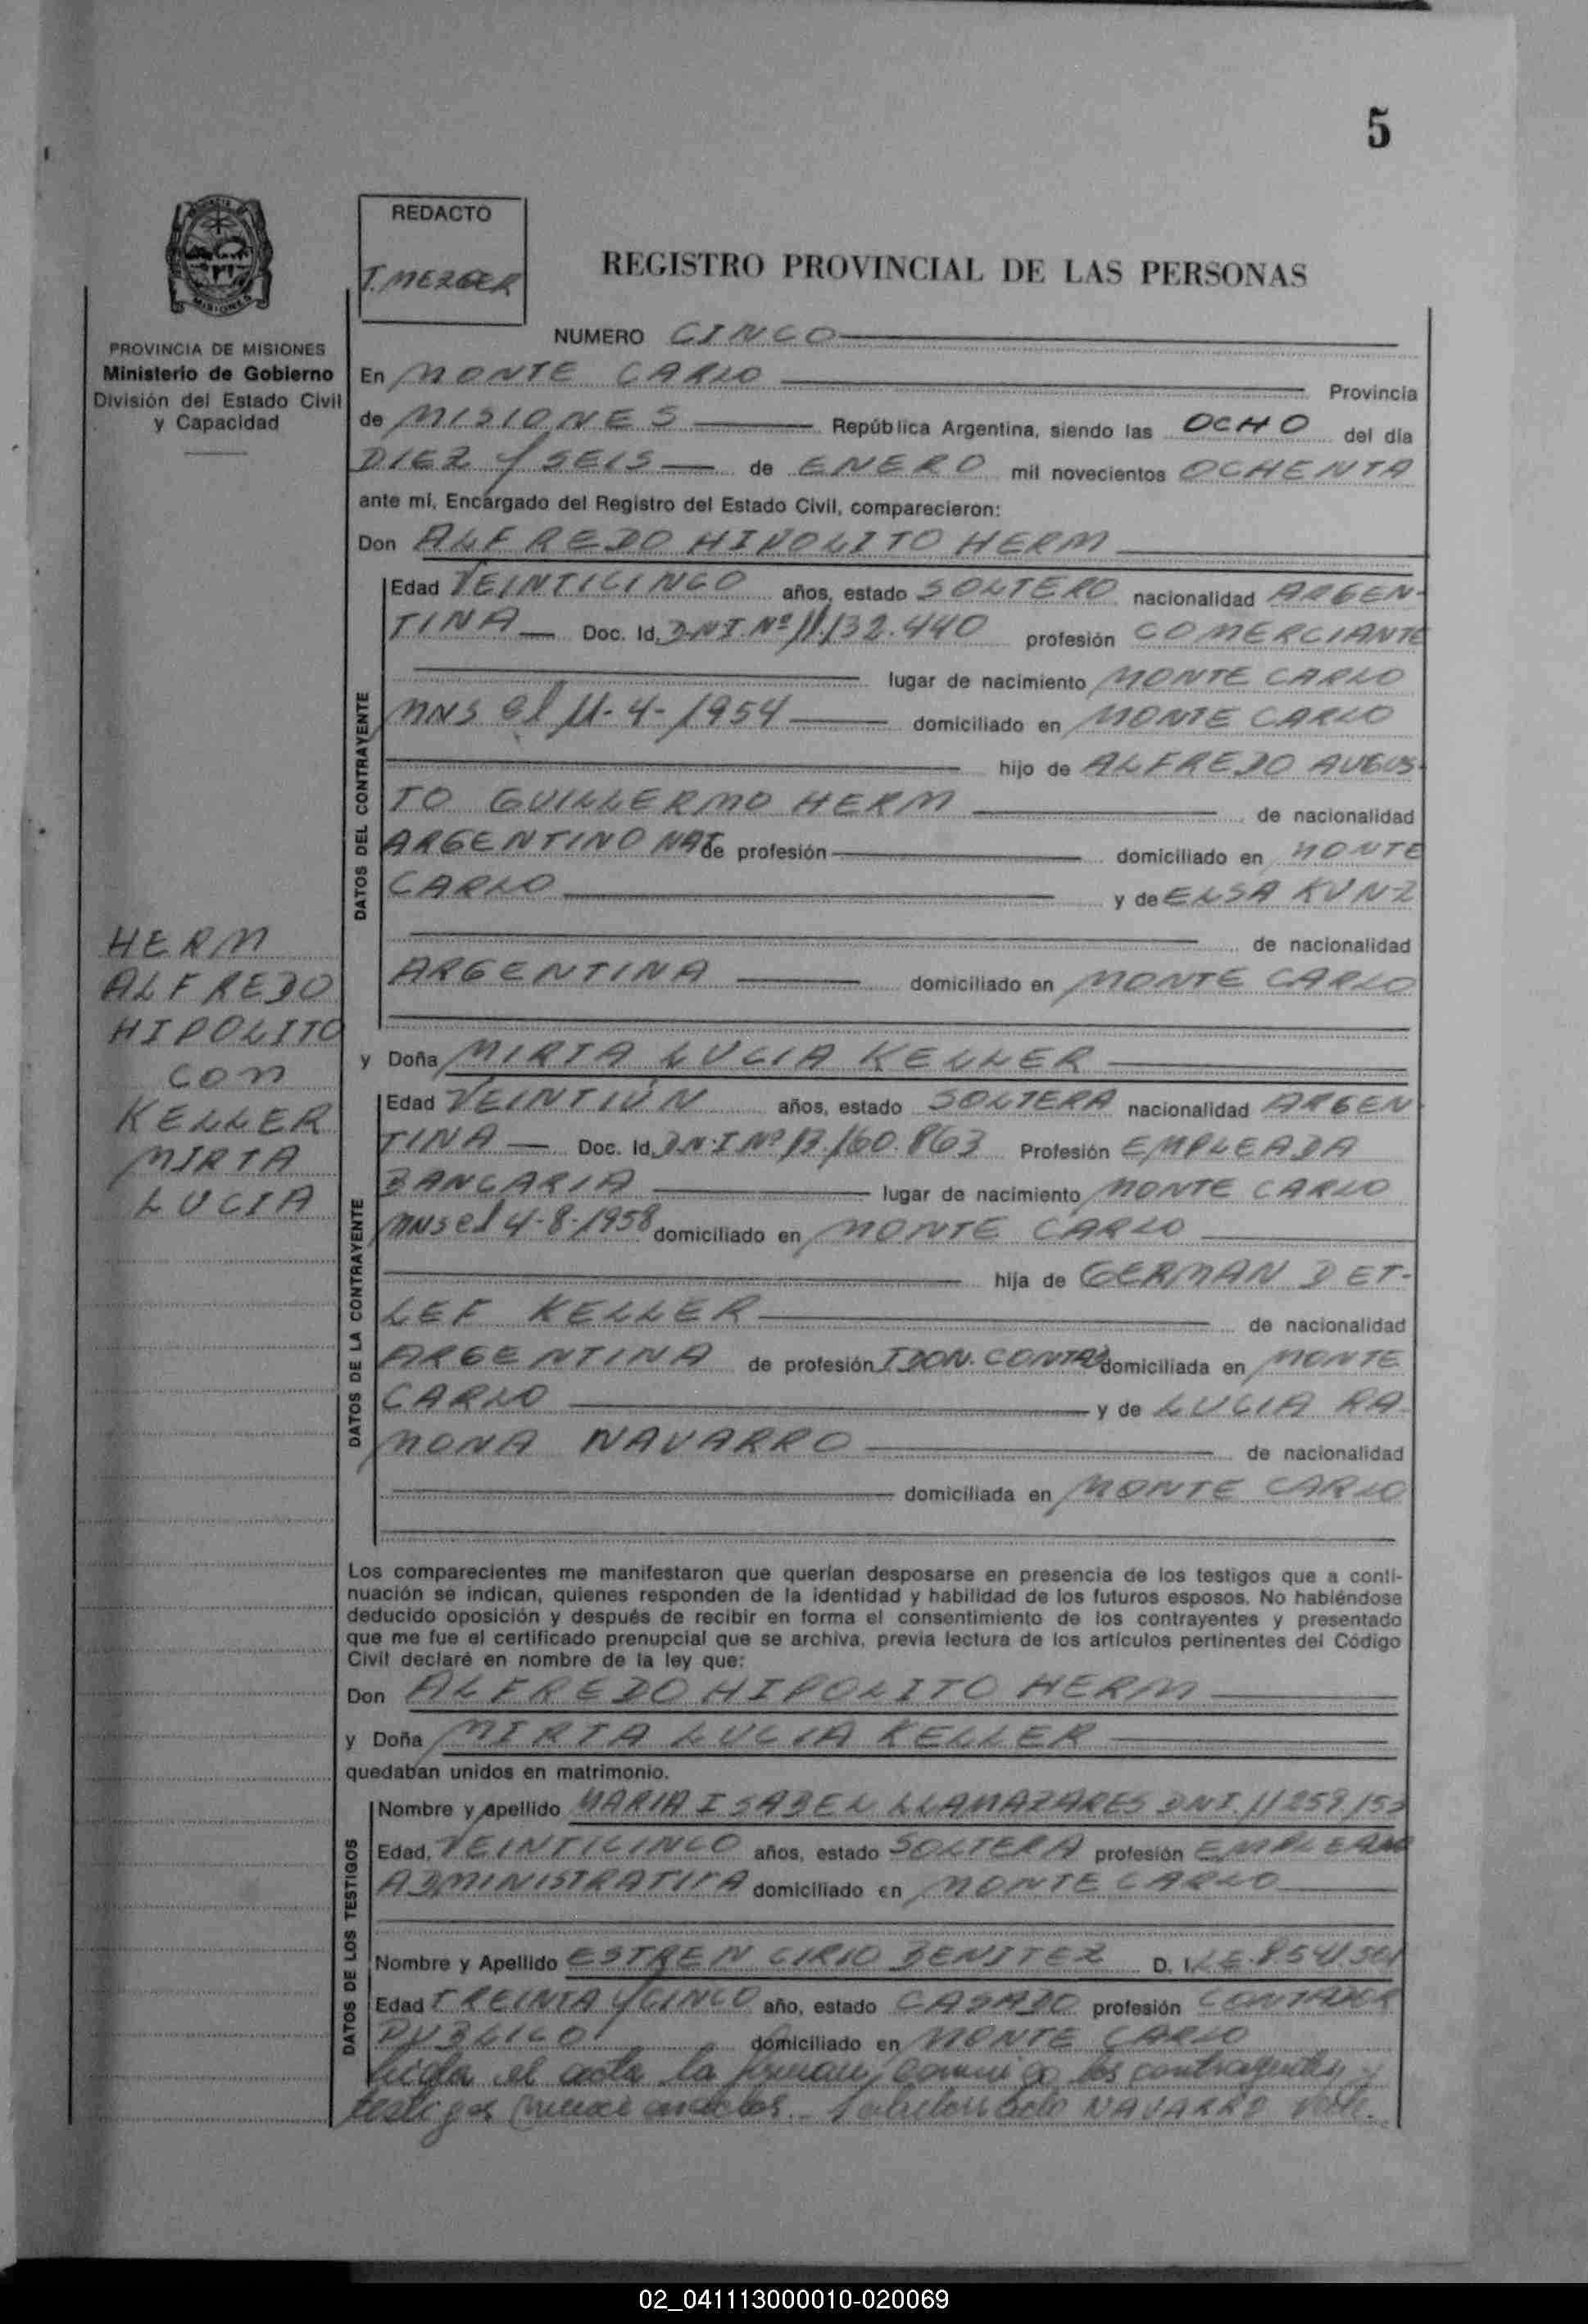 5
REDACTO
T. MEZGER
REGISTRO PROVINCIAL DE LAS PERSONAS
PROVINCIA DE MISIONES
Ministerio de Gobierno
División del Estado Civil
y Capacidad
NUMERO CINCO
En MONTE CARLO Provincia
de MISIONES República Argentina, siendo las OCHO del día
DIEZ Y SEIS de ENERO mil novecientos OCHENTA
ante mi, Encargado del Registro del Estado Civil, comparecieron:
Don ALFREDO HIPOLITO HERM
DATOS DEL CONTRAYENTE
Edad VEINTICINCO años, estado SOLTERO nacionalidad ARGEN-
TINA Doc. Id. DNI. Nº 11.132.440 profesión COMERCIANTE
lugar de nacimiento MONTE CARLO
MNS el 11-4-1954 domiciliado en MONTE CARLO
hijo de ALFREDO AUGUS-
TO GUILLERMO HERM de nacionalidad
ARGENTINO NAT de profesión domiciliado en MONTE
CARLO y de ELSA KUNZ
de nacionalidad
ARGENTINA domiciliado en MONTE CARLO
HERM
ALFREDO
HIPOLITO
CON
KELLER
MIRTA
LUCIA
y Doña MIRTA LUCIA KELLER
DATOS DE LA CONTRAYENTE
Edad VEINTIÚN años, estado SOLTERA nacionalidad ARGEN
TINA Doc. Id. DNI Nº 13.160.863 Profesión EMPLEADA
BANCARIA lugar de nacimiento MONTE CARLO
MNS el 4-8-1958 domiciliado en MONTE CARLO
hija de GERMAN DET-
LEF KELLER de nacionalidad
ARGENTINA de profesión IDON. CONTAB domiciliada en MONTE
CARLO y de LUCIA RA
MONA NAVARRO de nacionalidad
domiciliada en MONTE CARLO
Los comparecientes me manifestaron que querían desposarse en presencia de los testigos que a conti-
nuación se indican, quienes responden de la identidad y habilidad de los futuros esposos. No habiéndose
deducido oposición y después de recibir en forma el consentimiento de los contrayentes y presentado
que me fue el certificado prenupcial que se archiva, previa lectura de los artículos pertinentes del Código
Civil declaré en nombre de la ley que:
Don ALFREDO HIPOLITO HERM
y Doña MIRTA LUCIA KELLER
quedaban unidos en matrimonio.
DATOS DE LOS TESTIGOS
Nombre y apellido MARIA ISABEL LLAMAZARES DNI. 11259.153
Edad, VEINTICINCO años, estado SOLTERA profesión EMPLEADA
ADMINISTRATIVA domiciliado en MONTE CARLO
Nombre y Apellido CIRIO BENITEZ D. I. L.E. 8.541.561
Edad TREINTA Y CINCO año, estado CASADO profesión CONTADOR
PUBLICO domiciliado en MONTE CARLO
el acta la firman conmigo los contrayentes y
testigos NAVARRO vale.
02_041113000010-020069